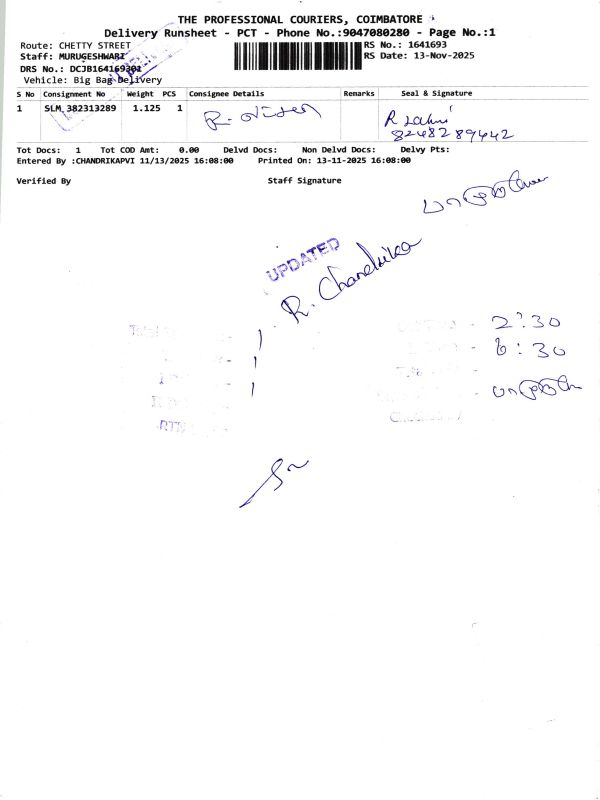 THE PROFESSIONAL COURIERS, COIMBATORE
Delivery Runsheet - PCT - Phone No.:9047080280 - Page No.:1
Route: CHETTY STREET
RS No.: 1641693
Staff: MURUGESHWARI
RS Date: 13-Nov-2025
DRS No.: DCJB164169301
Vehicle: Big Bag Delivery
S No Consignment No Weight PCS Consignee Details Remarks Seal & Signature
1 SLM 382313289 1.125 1 R. R Lakmi
8248289442
Tot Docs: 1 Tot COD Amt: 0.00 Delvd Docs: Non Delvd Docs: Delvy Pts:
Entered By :CHANDRIKAPVI 11/13/2025 16:08:00 Printed On: 13-11-2025 16:08:00
Verified By Staff Signature
UPDATED
R. Chandrika
- 2:30
- 6:30
RTN